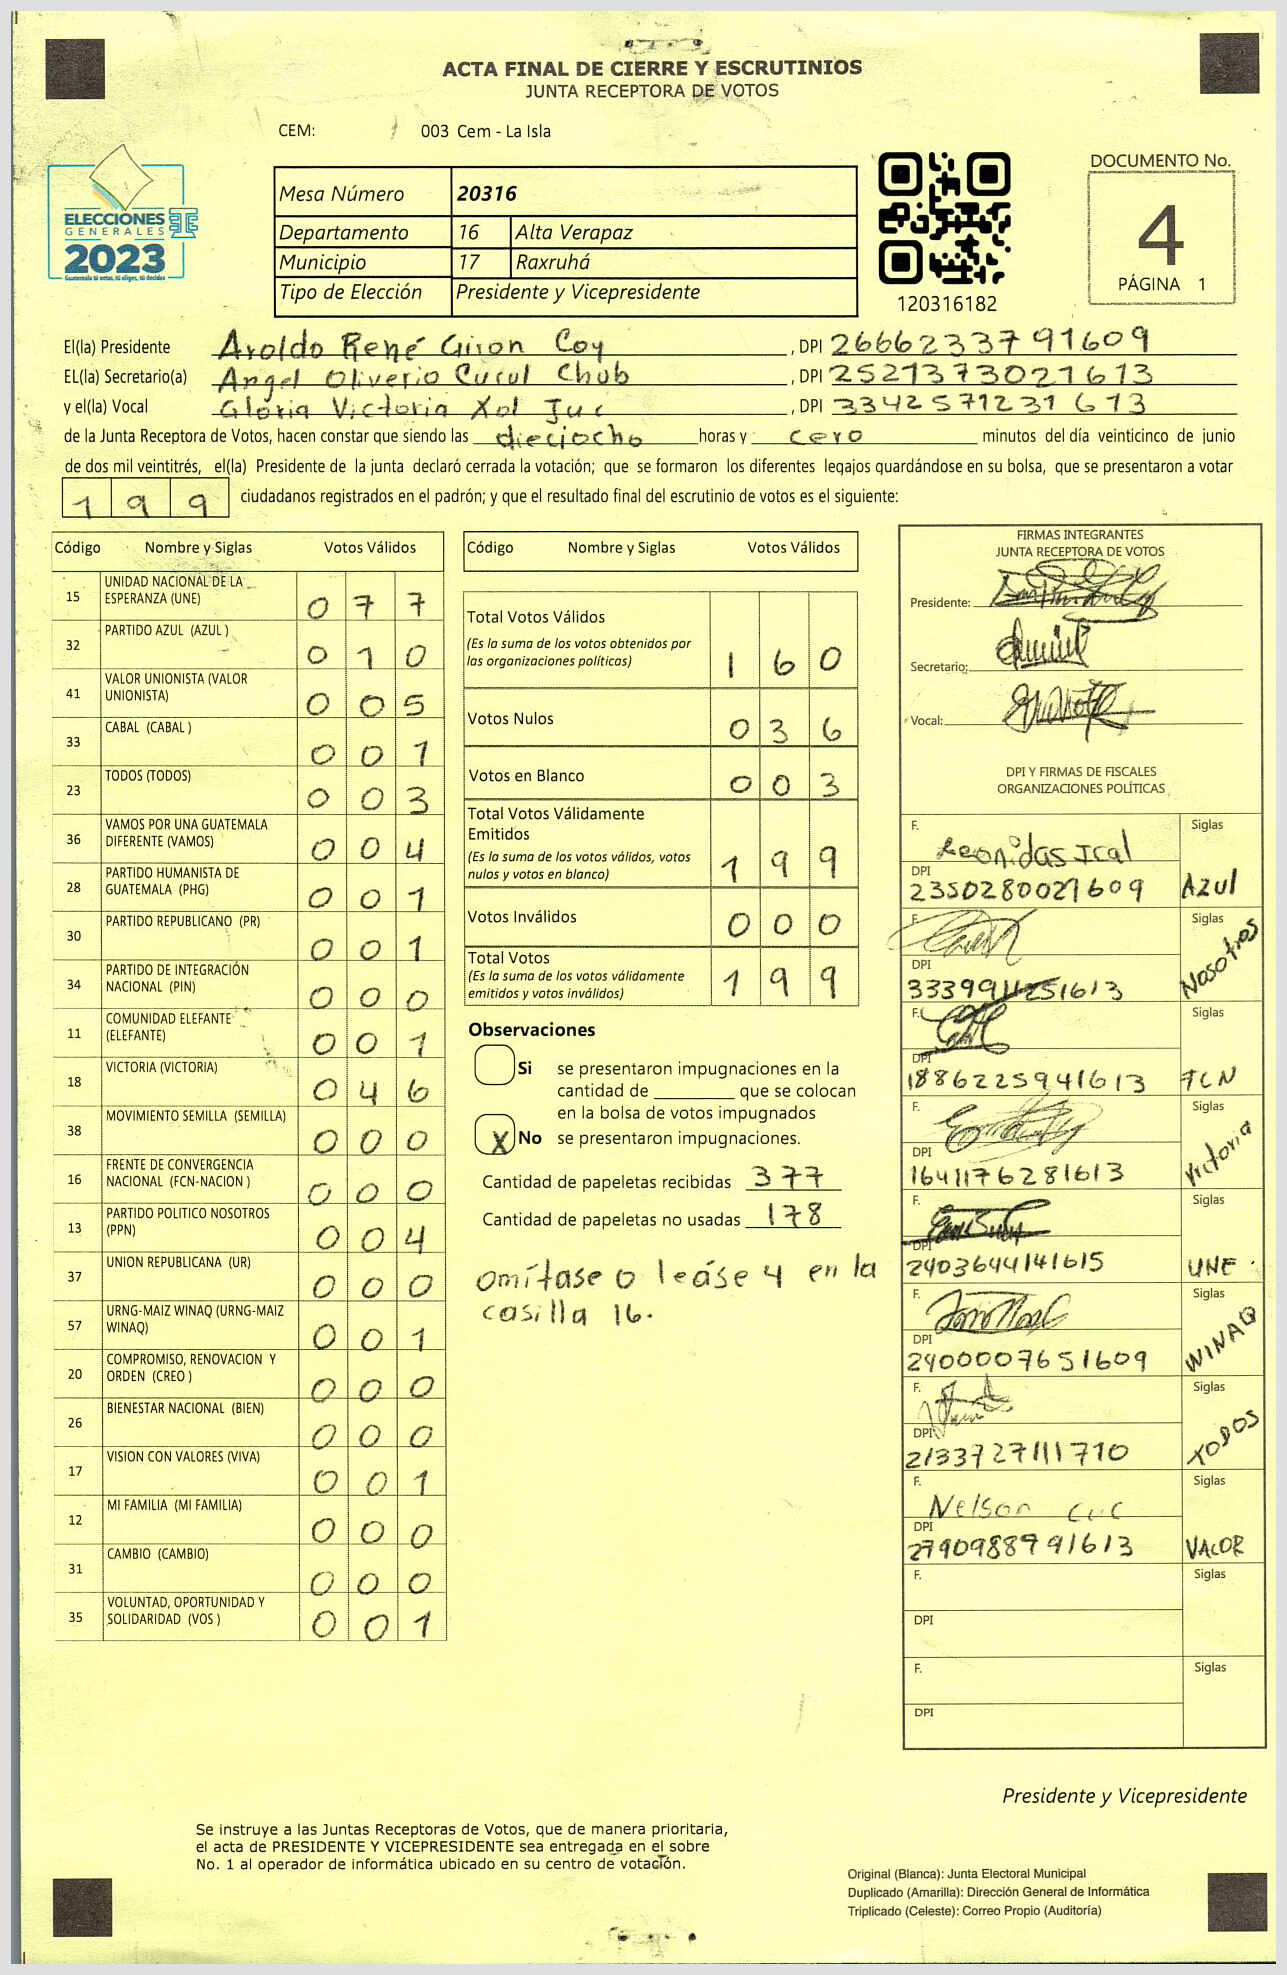 ACTA FINAL DE CIERRE Y ESCRUTINIOS
JUNTA RECEPTORA DE VOTOS
CEM: 003 Cem - La Isla
ELECCIONES
GENERALES
2023
Guatemala tú votas, tú eliges, tú decides
Mesa Número 20316
Departamento 16 Alta Verapaz
Municipio 17 Raxruhá
Tipo de Elección Presidente y Vicepresidente
120316182
DOCUMENTO No.
4
PÁGINA 1
El(la) Presidente Aroldo René Giron Coy , DPI 2666233791609
EL(la) Secretario(a) Angel Oliverio Cucul Chub , DPI 2521373021613
y el(la) Vocal Gloria Victoria Xol Juc , DPI 3342571231613
de la Junta Receptora de Votos, hacen constar que siendo las dieciocho horas y cero minutos del día veinticinco de junio
de dos mil veintitrés, el(la) Presidente de la junta declaró cerrada la votación; que se formaron los diferentes legajos guardándose en su bolsa, que se presentaron a votar
199 ciudadanos registrados en el padrón; y que el resultado final del escrutinio de votos es el siguiente:
Código Nombre y Siglas Votos Válidos
15 UNIDAD NACIONAL DE LA ESPERANZA (UNE) 077
32 PARTIDO AZUL (AZUL ) 010
41 VALOR UNIONISTA (VALOR UNIONISTA) 005
33 CABAL (CABAL ) 001
23 TODOS (TODOS) 003
36 VAMOS POR UNA GUATEMALA DIFERENTE (VAMOS) 004
28 PARTIDO HUMANISTA DE GUATEMALA (PHG) 001
30 PARTIDO REPUBLICANO (PR) 001
34 PARTIDO DE INTEGRACIÓN NACIONAL (PIN) 000
11 COMUNIDAD ELEFANTE (ELEFANTE) 001
18 VICTORIA (VICTORIA) 046
38 MOVIMIENTO SEMILLA (SEMILLA) 000
16 FRENTE DE CONVERGENCIA NACIONAL (FCN-NACION ) 000
13 PARTIDO POLITICO NOSOTROS (PPN) 004
37 UNION REPUBLICANA (UR) 000
57 URNG-MAIZ WINAQ (URNG-MAIZ WINAQ) 001
20 COMPROMISO, RENOVACION Y ORDEN (CREO ) 000
26 BIENESTAR NACIONAL (BIEN) 000
17 VISION CON VALORES (VIVA) 001
12 MI FAMILIA (MI FAMILIA) 000
31 CAMBIO (CAMBIO) 000
35 VOLUNTAD, OPORTUNIDAD Y SOLIDARIDAD (VOS ) 001
Código Nombre y Siglas Votos Válidos
Total Votos Válidos
(Es la suma de los votos obtenidos por
las organizaciones políticas) 160
Votos Nulos 036
Votos en Blanco 003
Total Votos Válidamente
Emitidos
(Es la suma de los votos válidos, votos
nulos y votos en blanco) 199
Votos Inválidos 000
Total Votos
(Es la suma de los votos válidamente
emitidos y votos inválidos) 199
Observaciones
Si se presentaron impugnaciones en la
cantidad de ________ que se colocan
en la bolsa de votos impugnados
X No se presentaron impugnaciones.
Cantidad de papeletas recibidas 377
Cantidad de papeletas no usadas 178
omítase 0 leáse 4 en la
casilla 16.
FIRMAS INTEGRANTES
JUNTA RECEPTORA DE VOTOS
Presidente:
Secretario:
Vocal:
DPI Y FIRMAS DE FISCALES
ORGANIZACIONES POLÍTICAS
F. Leonidas Ical Siglas
DPI 2350280021609 AZUL
F. Siglas
DPI 3339911251613 Nosotros
F. Siglas
DPI 1886225941613 FCN
F. Siglas
DPI 1641176281613 Victoria
F. Siglas
DPI 2403644141615 UNE
F. Siglas
DPI 2400007651609 WINAQ
F. Siglas
DPI 2133727111710 TODOS
F. Nelson Cuc Siglas
DPI 2790988791613 VALOR
F. Siglas
DPI
F. Siglas
DPI
Presidente y Vicepresidente
Se instruye a las Juntas Receptoras de Votos, que de manera prioritaria,
el acta de PRESIDENTE Y VICEPRESIDENTE sea entregada en el sobre
No. 1 al operador de informática ubicado en su centro de votación.
Original (Blanca): Junta Electoral Municipal
Duplicado (Amarilla): Dirección General de Informática
Triplicado (Celeste): Correo Propio (Auditoría)